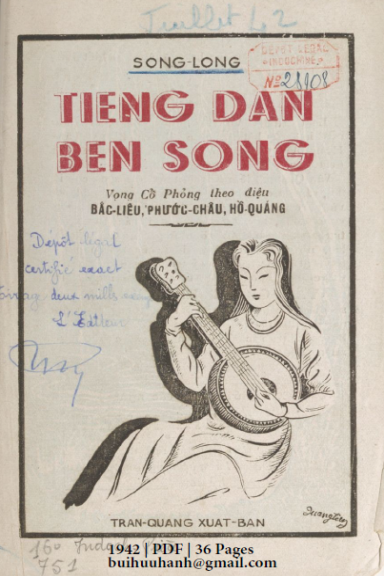 Juillet 42
SONG-LONG
DEPOT LEGAL
INDOCHINE
Nº 28808
TIENG DAN
BEN SONG
Vọng Cổ Phỏng theo điệu
BẮC-LIÊU, PHƯỚC-CHÂU, HỒ-QUẢNG
Dépôt légal
certifié exact
deux mille
L'Editeur
TRAN-QUANG XUAT-BAN
16º Indoch.
751
1942 | PDF | 36 Pages
buihuuhanh@gmail.com